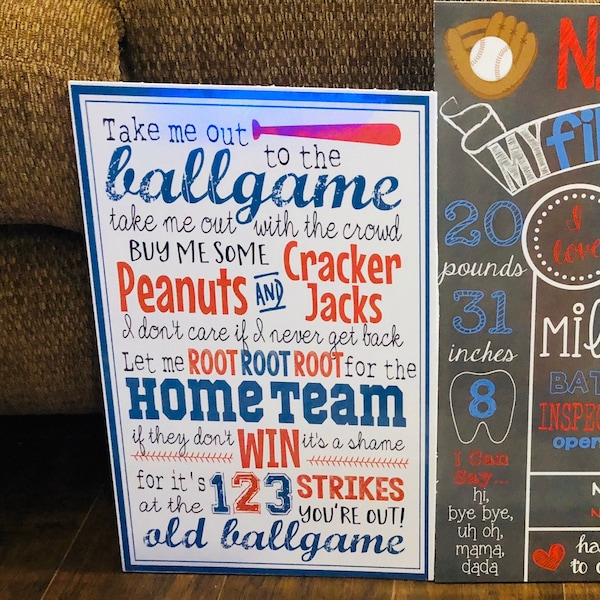 Take me out
to the
ballgame
take me out with the crowd
BUY ME SOME
Peanuts AND Cracker
Jacks
I don't care if I never get back
Let me ROOT ROOT ROOT for the
Home Team
if they don't WIN it's a shame
for it's 1 2 3 STRIKES
at the YOU'RE OUT!
old ballgame
MY
20
pounds
31
inches
8
I Can
Say...
hi,
bye bye,
uh oh,
mama,
dada
I
love
to